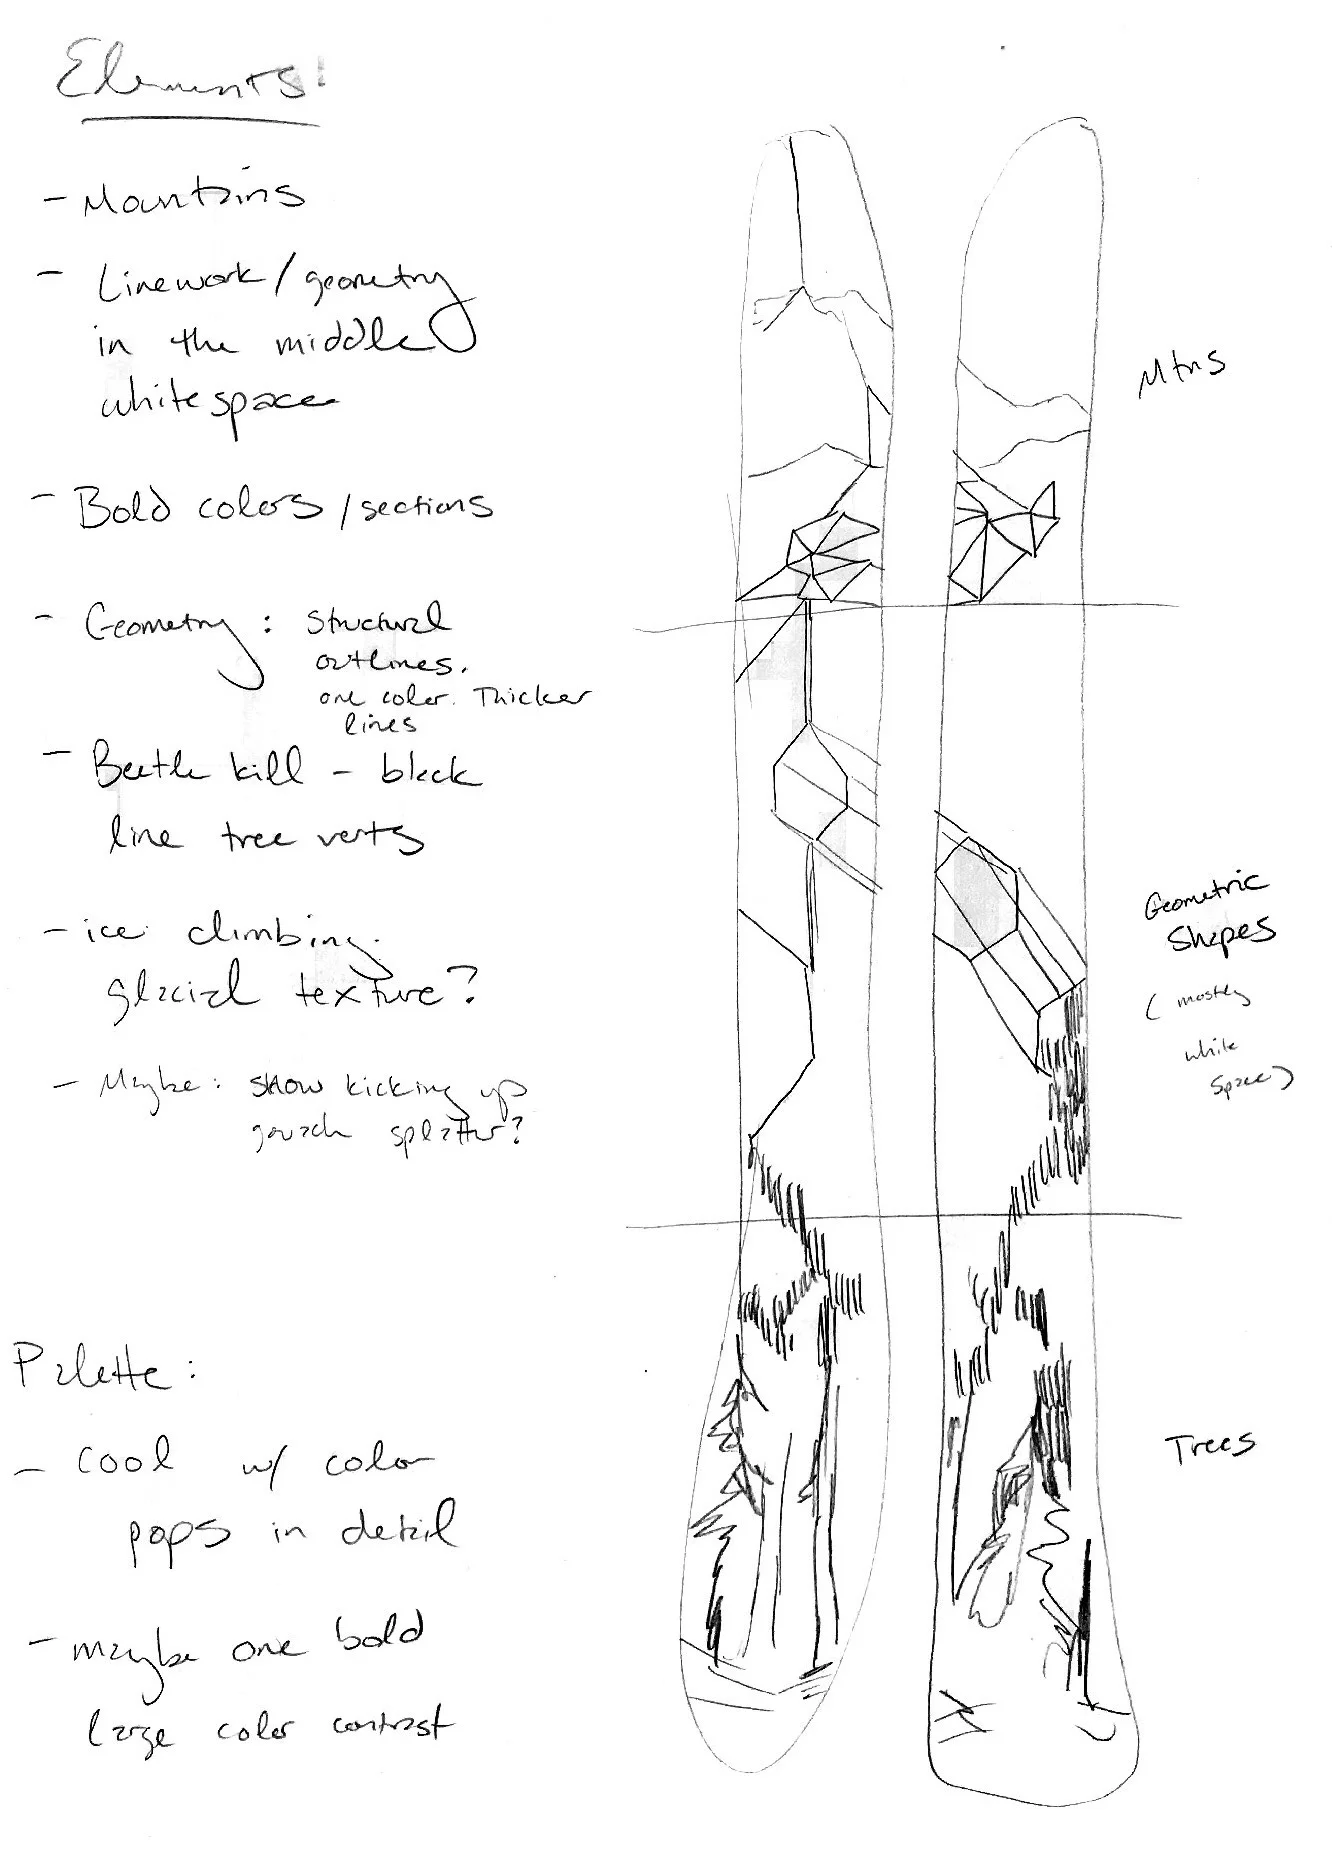 Elements:
- Mountains
- Linework / geometry
in the middle
whitespace
- Bold colors / sections
- Geometry : structural
outlines.
one color. Thicker
lines
- Beetle kill - black
line tree verts
- ice climbing.
glacial texture?
- Maybe: snow kicking up
gouach splatter?
Palette:
- cool w/ color
pops in detail
- maybe one bold
large color contrast
Mtns
Geometric
Shapes
( mostly
white
space)
Trees